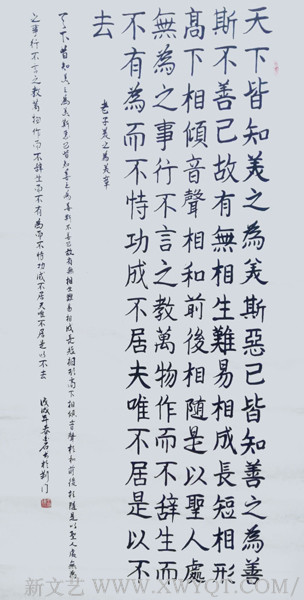 天下皆知美之為美斯惡已皆知善之為善
斯不善已故有無相生難易相成長短相形
髙下相傾音聲相和前後相隨是以聖人處
無為之事行不言之教萬物作而不辭生而
不有為而不恃功成不居夫唯不居是以不
去
老子美之為美章
天下皆知美之為美斯惡已皆知善之為善斯不善已故有無相生難易相成長短相形高下相傾音聲相和前後相隨是以聖人處無為
之事行不言之教萬物作而不辭生而不有為而不恃功成不居夫唯不居是以不去
戊戌年春於荆门
新文艺 WWW.XWYQT.COM